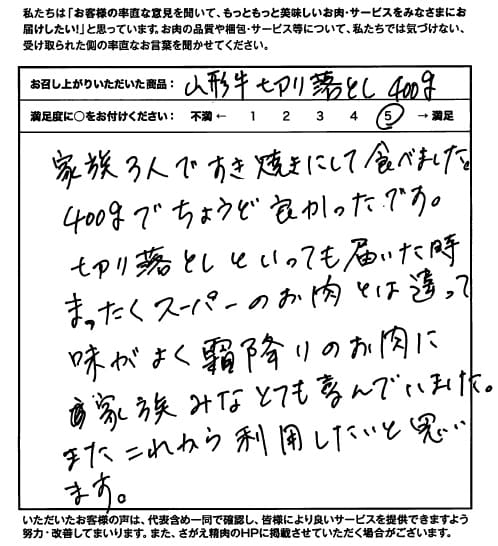 私たちは「お客様の率直な意見を聞いて、もっともっと美味しいお肉・サービスをみなさまにお
届けしたい!」と思っています。お肉の品質や梱包・サービス等について、私たちでは気づけない、
受け取られた側の率直なお言葉を聞かせてください。
お召し上がりいただいた商品: 山形牛切り落とし 400g
満足度に○をお付けください: 不満 ← 1 2 3 4 5 → 満足
家族3人ですき焼きにして食べました。
400gでちょうど良かったです。
切り落としといっても届いた時
まったくスーパーのお肉とは違って
味がよく霜降りのお肉に
家族みなとても喜んでいました。
またこれから利用したいと思い
ます。
いただいたお客様の声は、代表含め一同で確認し、皆様により良いサービスを提供できますよう
努力・改善してまいります。また、さがえ精肉のHPに掲載させていただく場合がございます。